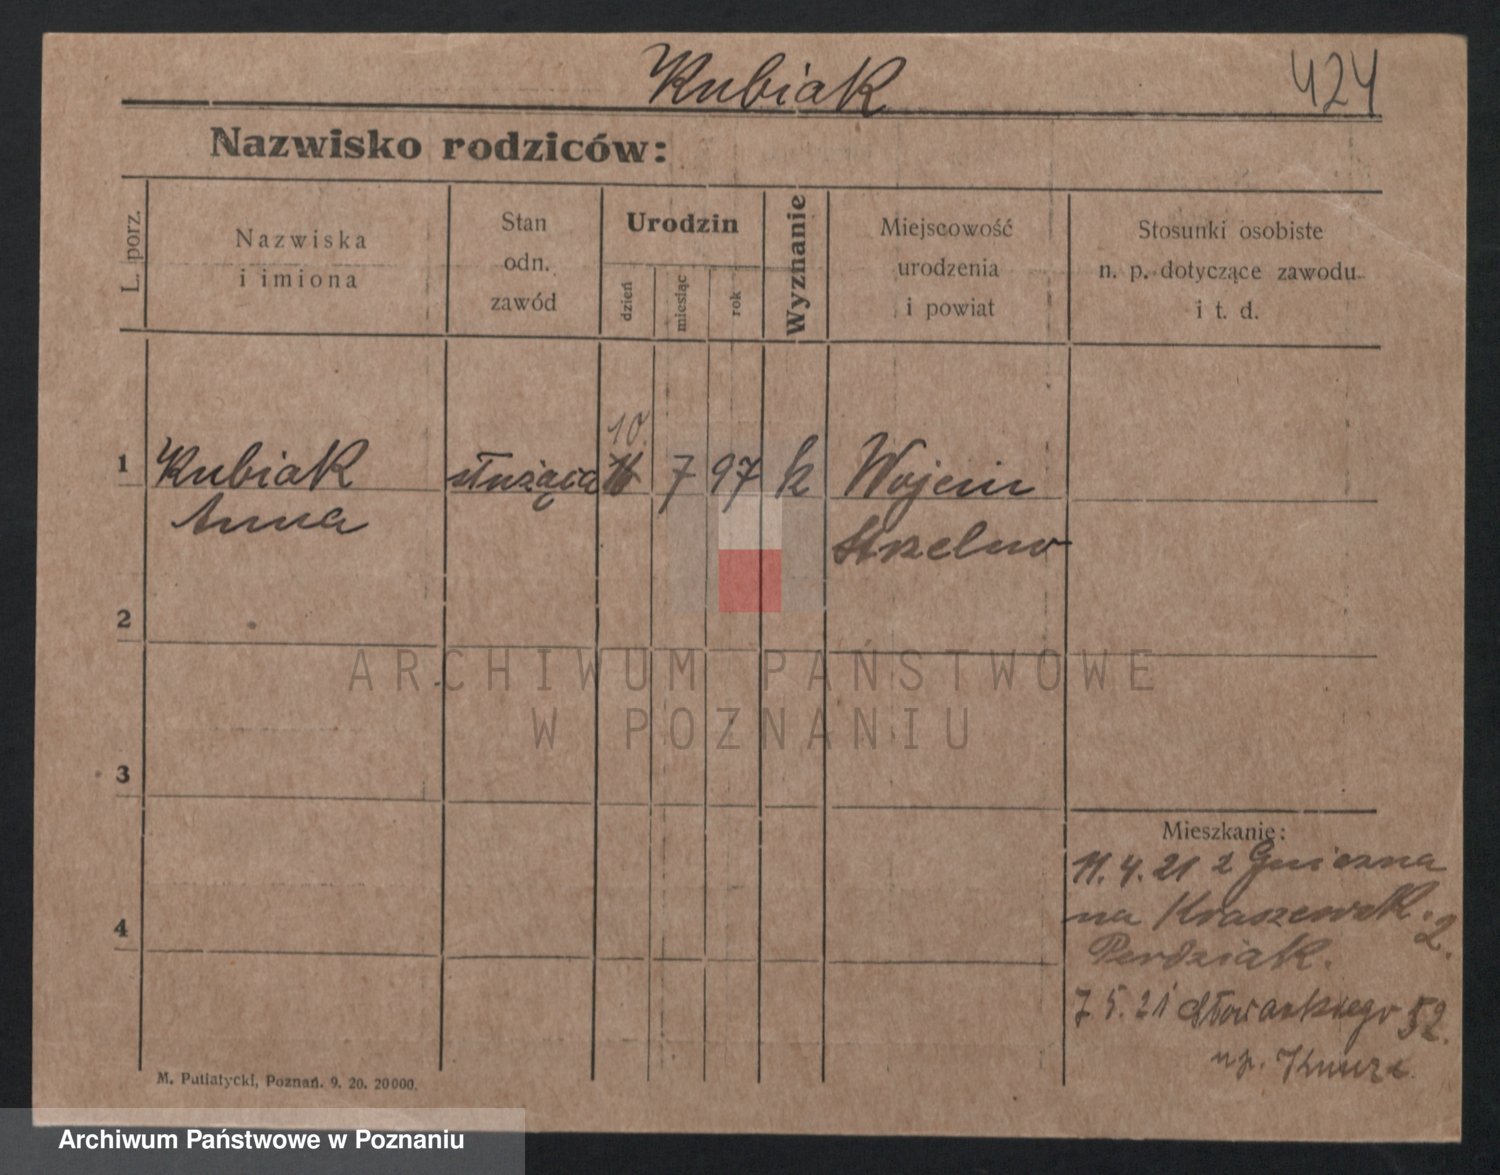 Kubiak
424
Nazwisko rodziców:
L. porz.
Nazwiska
i imiona
Stan
odn.
zawód
Urodzin
dzień
miesiąc
rok
Wyznanie
Miejscowość
urodzenia
i powiat
Stosunki osobiste
n. p. dotyczące zawodu
i t. d.
10.
1 Kubiak służąca 7 97 k Wojcin
Anna Strzelno
2
3
4
ARCHIWUM PAŃSTWOWE
W POZNANIU
Mieszkanie:
11.4.21 z Gniezna
na Kraszewsk. 2.
Perdziak.
7.5.21 Słowackiego 52.
np.
M. Putiatycki, Poznań. 9. 20. 20000.
Archiwum Państwowe w Poznaniu